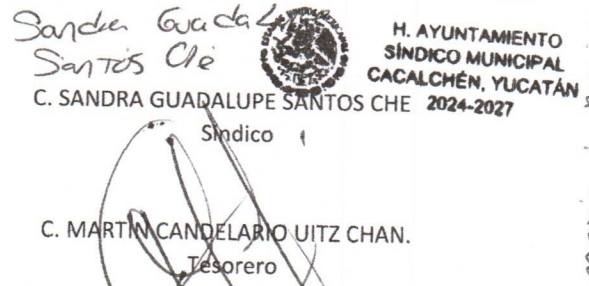 Sandra Guadal
Santos Che
H. AYUNTAMIENTO
SÍNDICO MUNICIPAL
CACALCHÉN, YUCATÁN
2024-2027
C. SANDRA GUADALUPE SANTOS CHE
Síndico
C. MARTIN CANDELARIO UITZ CHAN.
Tesorero